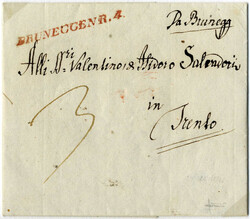 BRUNEGGEN R. 4.
Pa Brunegg
Alli Sri Valentino & Isidoro Salvadori
in
Trento
3